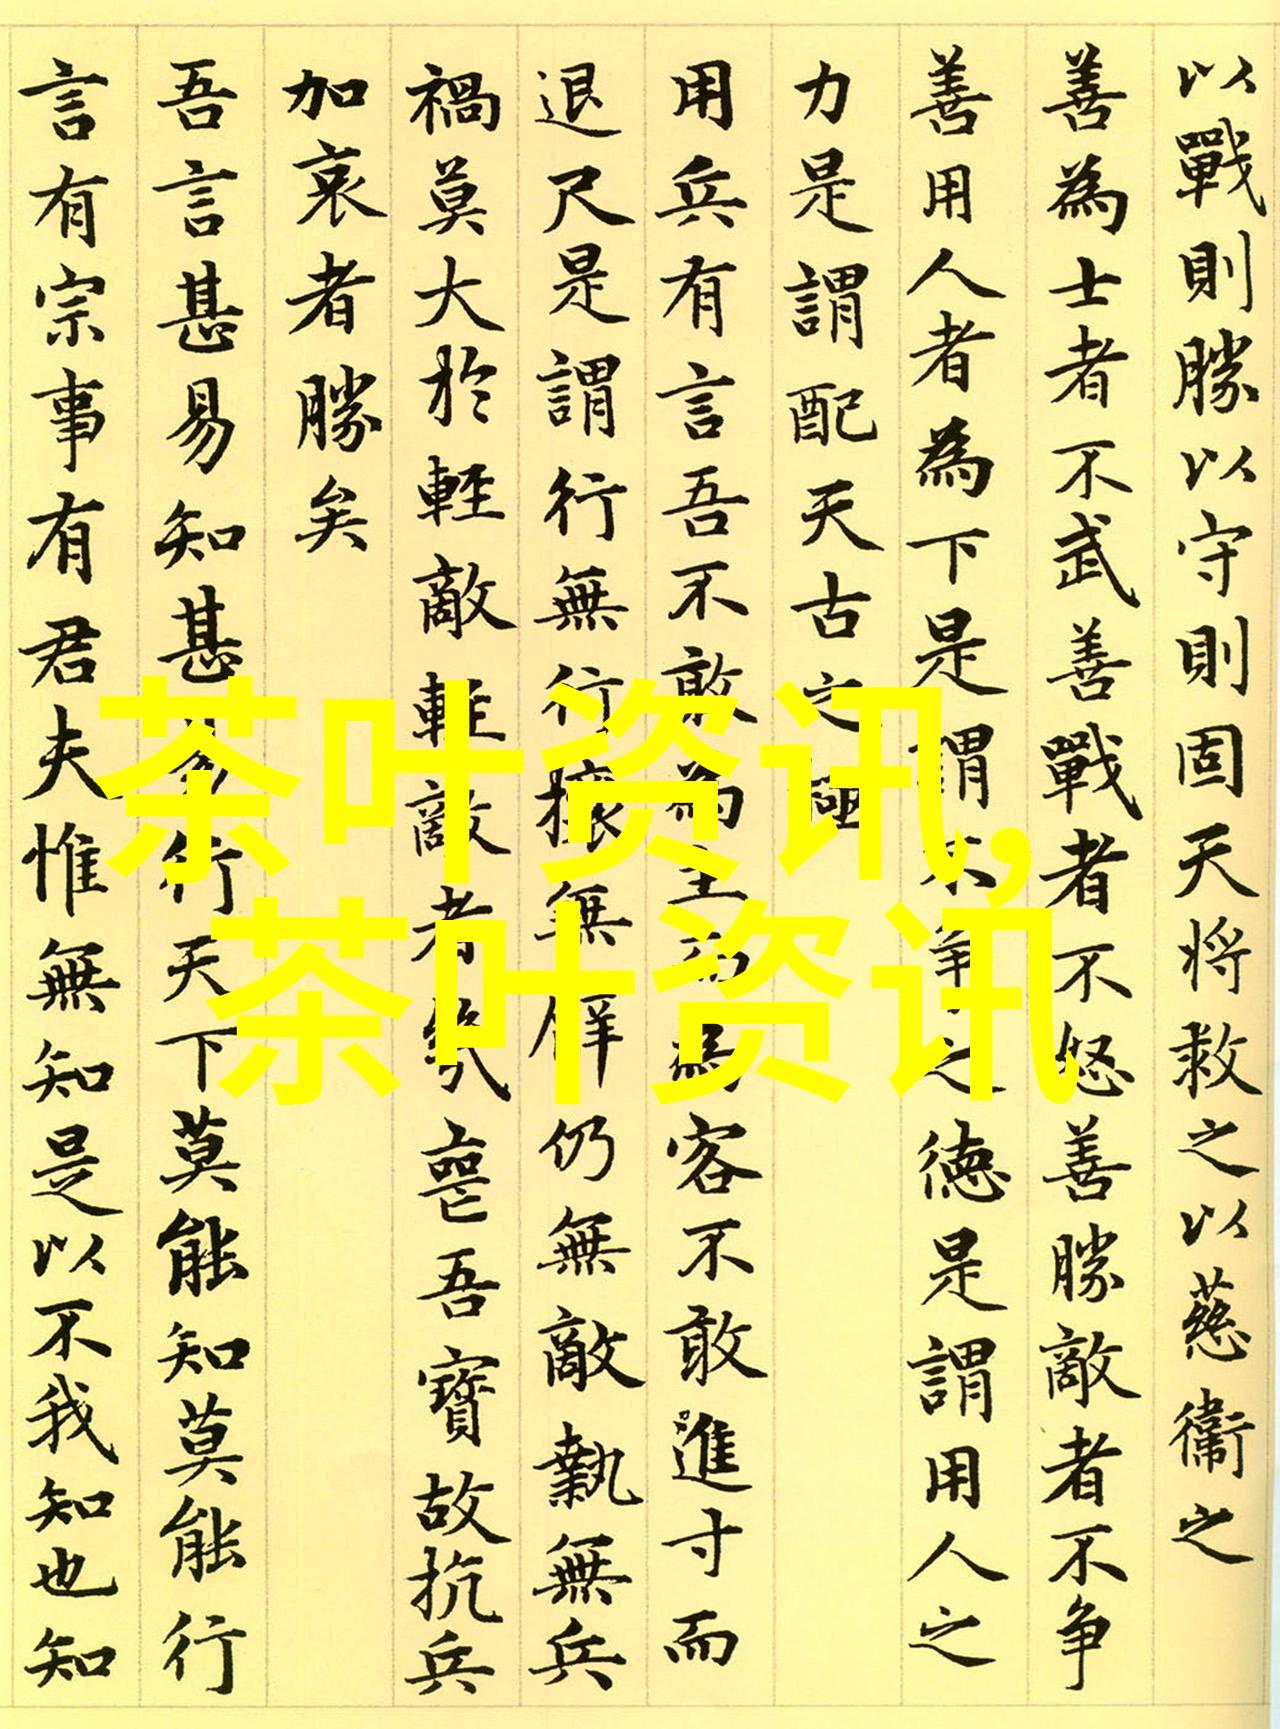 以戰則勝以守則固天将救之以慈衞之
善為士者不武善戰者不怒善勝敵者不争
善用人者為下是謂不争之德是謂用人之
力是謂配天古之極
用兵有言吾不敢為主而為客不敢進寸而
退尺是謂行無行攘無臂仍無敵執無兵
禍莫大於輕敵輕敵者幾喪吾寶故抗兵
加哀者勝矣
吾言甚易知甚易行天下莫能知莫能行
言有宗事有君夫惟無知是以不我知也知
茶叶资讯,
茶叶资讯